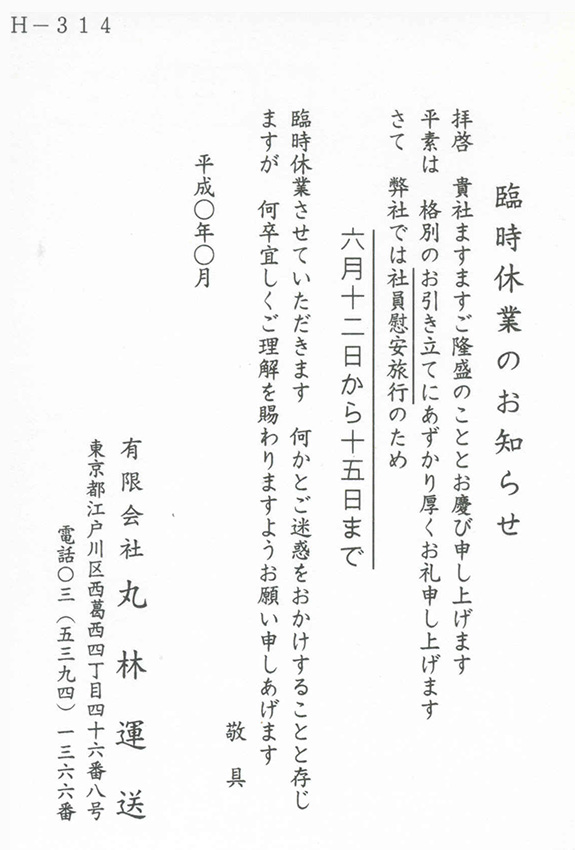 H－314
臨時休業のお知らせ
拝啓　貴社ますますご隆盛のこととお慶び申し上げます
平素は　格別のお引き立てにあずかり厚くお礼申し上げます
さて　弊社では社員慰安旅行のため
六月十二日から十五日まで
臨時休業させていただきます　何かとご迷惑をおかけすることと存じ
ますが　何卒宜しくご理解を賜わりますようお願い申しあげます
敬具
平成〇年〇月
有限会社　丸林運送
東京都江戸川区西葛西四丁目四十六番八号
電話〇三（五三九四）一三六六番